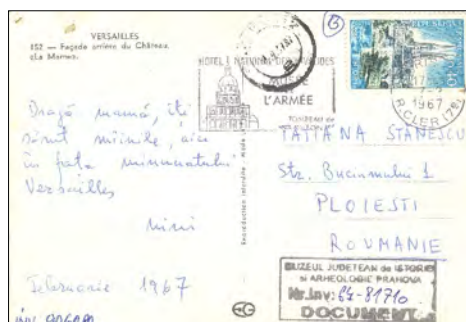 VERSAILLES
152 — Façade arrière du Château.
«La Marne».
Dragă mamă, îți
sărut mîinile, aici
în fața minunatului
Versailles
Mimi
Februarie 1967
HOTEL NATIONAL DES INVALIDES
L'ARMÉE
1967
R.CLER (7e)
TATIANA STĂNESCU
Str. Buciumului 1
PLOIESTI
ROUMANIE
MUZEUL JUDETEAN de ISTORIE
si ARHEOLOGIE PRAHOVA
Nr.inv: 64-81710
DOCUMENT